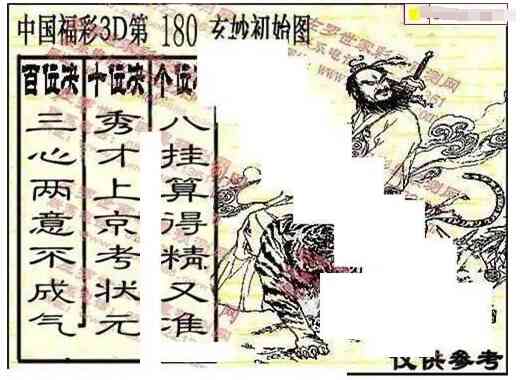 中国福彩3D第 180 玄妙初始图
百位决
三心两意不成气
十位决
秀才上京考状元
个位
八挂算得精又准
仅供参考